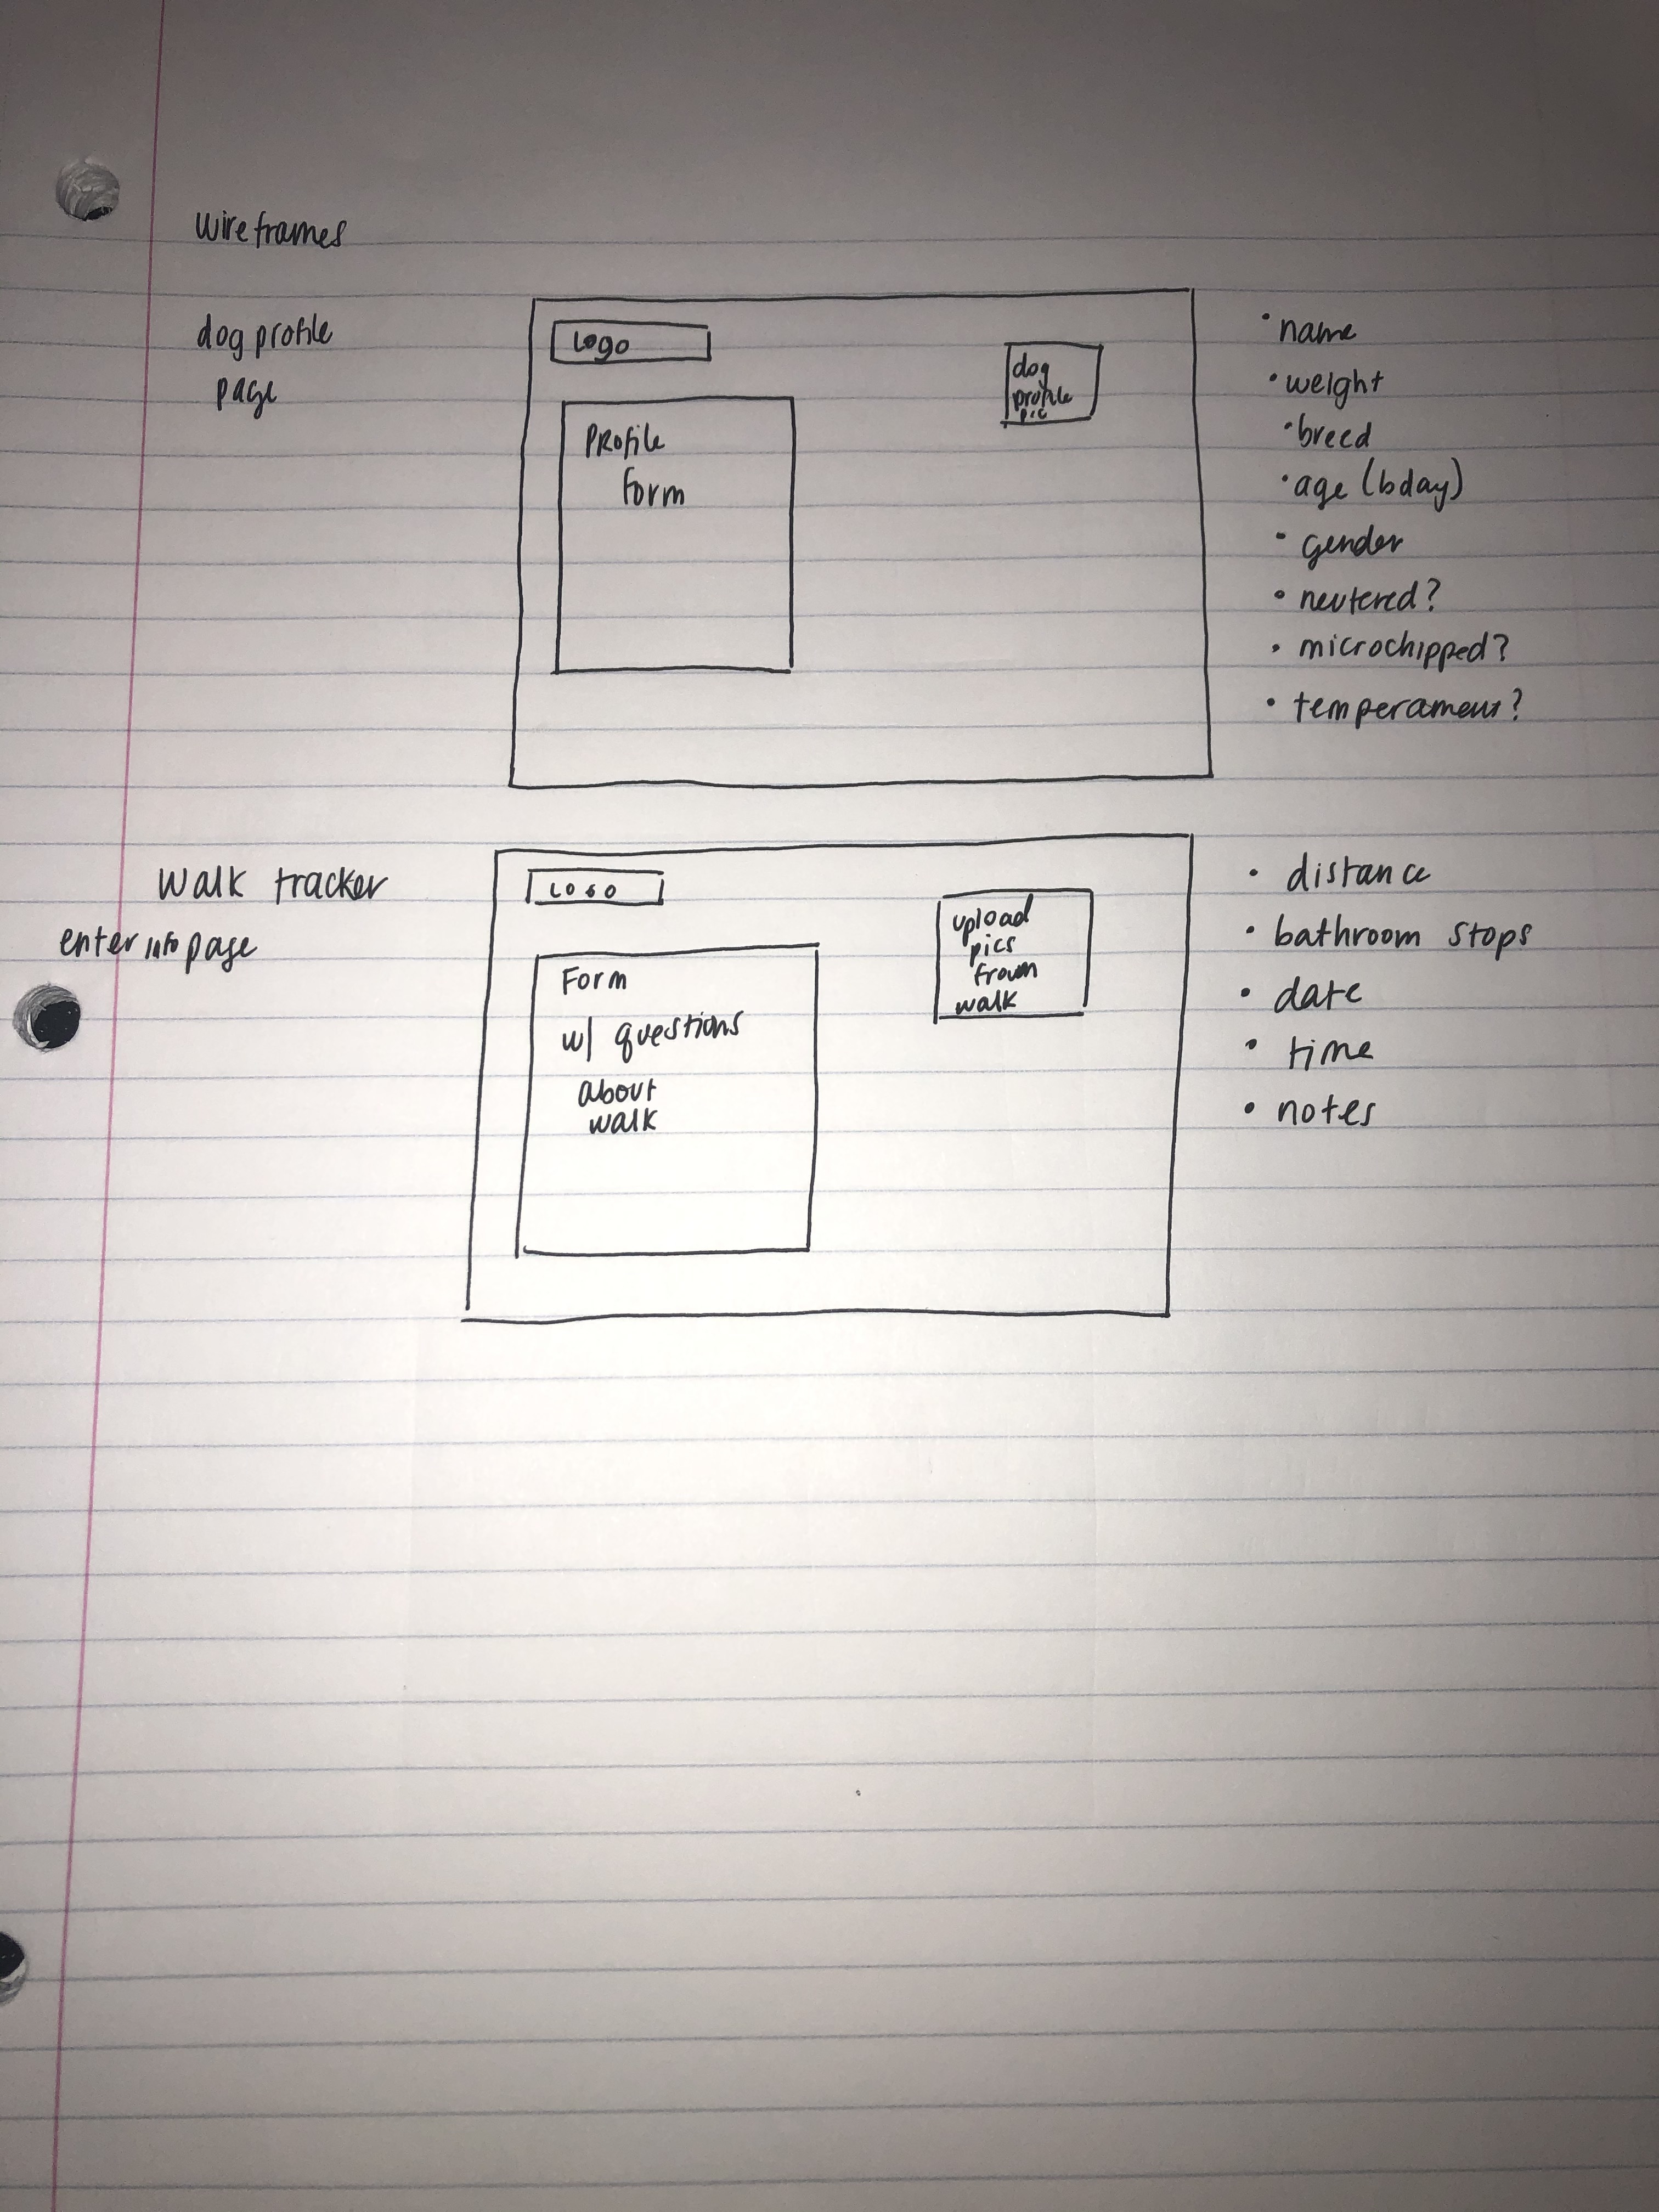 wireframes
dog profile
page
Logo
dog
profile
pic
Profile
Form
• name
• weight
• breed
• age (bday)
• gender
• neutered?
• microchipped?
• temperament?
Walk tracker
enter info page
Logo
upload
pics
from
walk
Form
w/ questions
about
walk
• distance
• bathroom stops
• date
• time
• notes